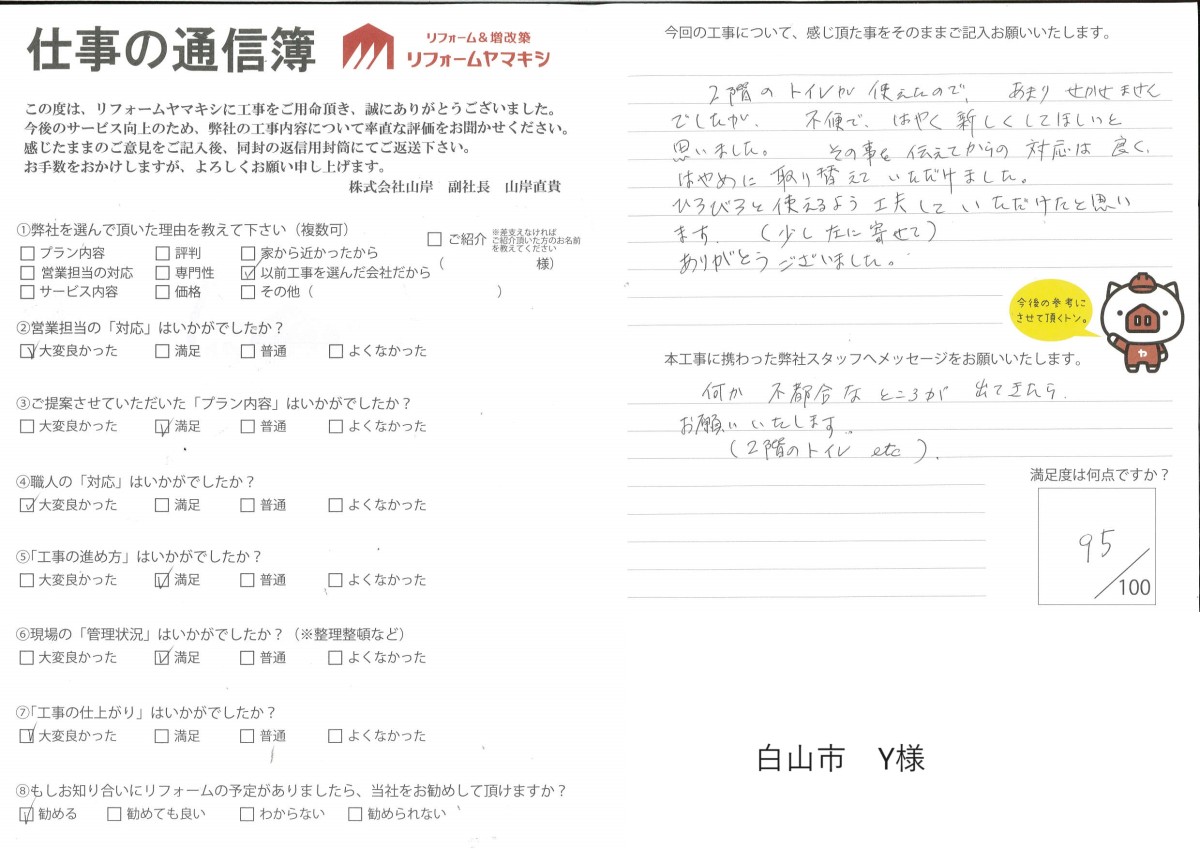 仕事の通信簿
リフォーム&増改築
リフォームヤマキシ
この度は、リフォームヤマキシに工事をご用命頂き、誠にありがとうございました。
今後のサービス向上のため、弊社の工事内容について率直な評価をお聞かせください。
感じたままのご意見をご記入後、同封の返信用封筒にてご返送下さい。
お手数をおかけしますが、よろしくお願い申し上げます。
株式会社山岸 副社長 山岸直貴
①弊社を選んで頂いた理由を教えて下さい(複数可)
□プラン内容 □評判 □家から近かったから
□営業担当の対応 □専門性 ☑以前工事を選んだ会社だから
□サービス内容 □価格 □その他( )
□ご紹介 ※差支えなければ
ご紹介頂いた方のお名前
を教えてください
( 様)
②営業担当の「対応」はいかがでしたか?
☑大変良かった □満足 □普通 □よくなかった
③ご提案させていただいた「プラン内容」はいかがでしたか?
□大変良かった ☑満足 □普通 □よくなかった
④職人の「対応」はいかがでしたか?
☑大変良かった □満足 □普通 □よくなかった
⑤「工事の進め方」はいかがでしたか?
□大変良かった ☑満足 □普通 □よくなかった
⑥現場の「管理状況」はいかがでしたか?(※整理整頓など)
□大変良かった ☑満足 □普通 □よくなかった
⑦「工事の仕上がり」はいかがでしたか?
☑大変良かった □満足 □普通 □よくなかった
⑧もしお知り合いにリフォームの予定がありましたら、当社をお勧めして頂けますか?
☑勧める □勧めても良い □わからない □勧められない
今回の工事について、感じ頂た事をそのままご記入お願いいたします。
2階のトイレが使えたので、あまりせかせませんで
でしたが、不便で、はやく新しくしてほしいと
思いました。その事を伝えてからの対応は良く、
はやめに取り替えていただけました。
ひろびろと使えるよう工夫していただけたと思い
ます。(少し左に寄せて)
ありがとうございました。
今後の参考に
させて頂くトン。
ヤ
本工事に携わった弊社スタッフへメッセージをお願いいたします。
何か不都合なところが出てきたら、
お願いいたします。
(2階のトイレ etc)。
満足度は何点ですか?
95
/100
白山市 Y様